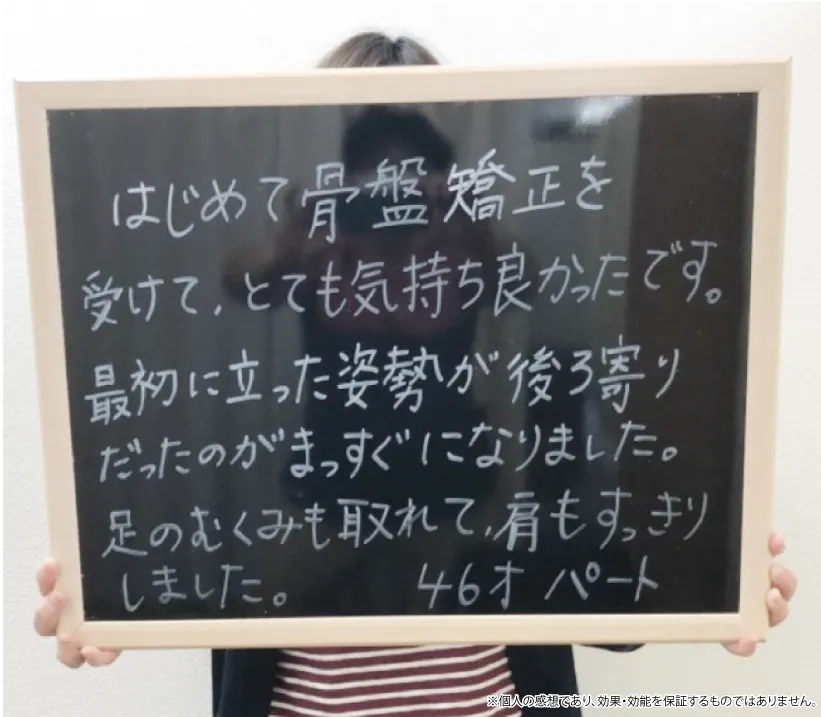 はじめて骨盤矯正を
受けて、とても気持ち良かったです。
最初に立った姿勢が後ろ寄り
だったのがまっすぐになりました。
足のむくみも取れて、肩もすっきり
しました。 46才 パート
※個人の感想であり、効果・効能を保証するものではありません。